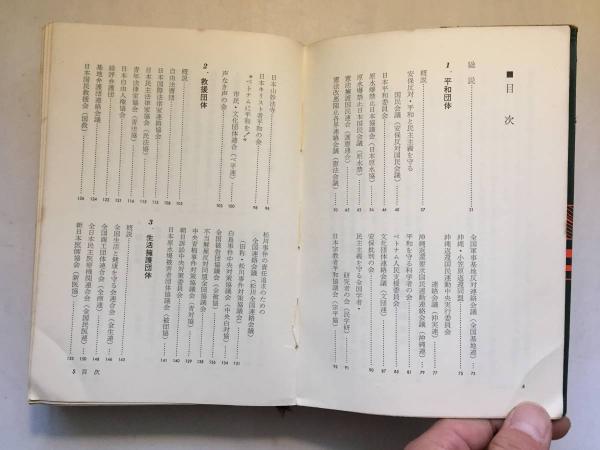 ■目次
総説 21
1. 平和団体
概説 37
安保反対・平和と民主主義を守る
国民会議（安保反対国民会議） 40
日本平和委員会
原水爆禁止日本協議会（日本原水協）
原水爆禁止日本国民会議（原水禁）
憲法擁護国民連合（護憲連合）
憲法改悪阻止各界連絡会議（憲法会議）
全国軍事基地反対連絡会議（全国基地連） 73
沖縄・小笠原返還同盟 75
沖縄返還国民運動中央実行委員会
連絡会議（沖実連） 77
沖縄返還要求国民運動連絡会議（沖縄連） 79
平和を守る科学者の会 81
ベトナム人民支援委員会 85
文化団体連絡会議（文団連） 87
安保批判の会 90
民主主義を守る全国学者・
研究者の会（民学研） 91
日本宗教者平和協議会（宗平協） 95
4
日本山妙法寺 96
日本キリスト者平和の会 98
“ベトナムに平和を！”
市民・文化団体連合（ベ平連） 100
声なき声の会 103
2. 救援団体
概説 105
自由法曹団 108
日本国際法律家連絡協会
日本民主法律家協会（民法協）
青年法律家協会（青法協）
日本自由人権協会
総評弁護団
基地弁護団連絡会議
日本国民救援会（国救） 126
松川事件の責任追求のための
全国連絡会議（松全連絡会）
（旧称・松川事件対策協議会） 131
白鳥事件中央対策協議会（中央白対協） 134
全国被告団協議会（全被協）
不当解雇反対同盟全国協議会
中央青梅事件対策協議会（青対協）
朝日訴訟中央対策委員会 140
日本原水爆被害者団体協議会（被団協） 141
3. 生活擁護団体
概説 143
全国生活と健康を守る会連合会（全生連） 146
全国商工団体連合会（全商連） 148
全日本民主医療機関連合会（全国民医連） 150
新日本医師協会（新医協） 152
5 目次